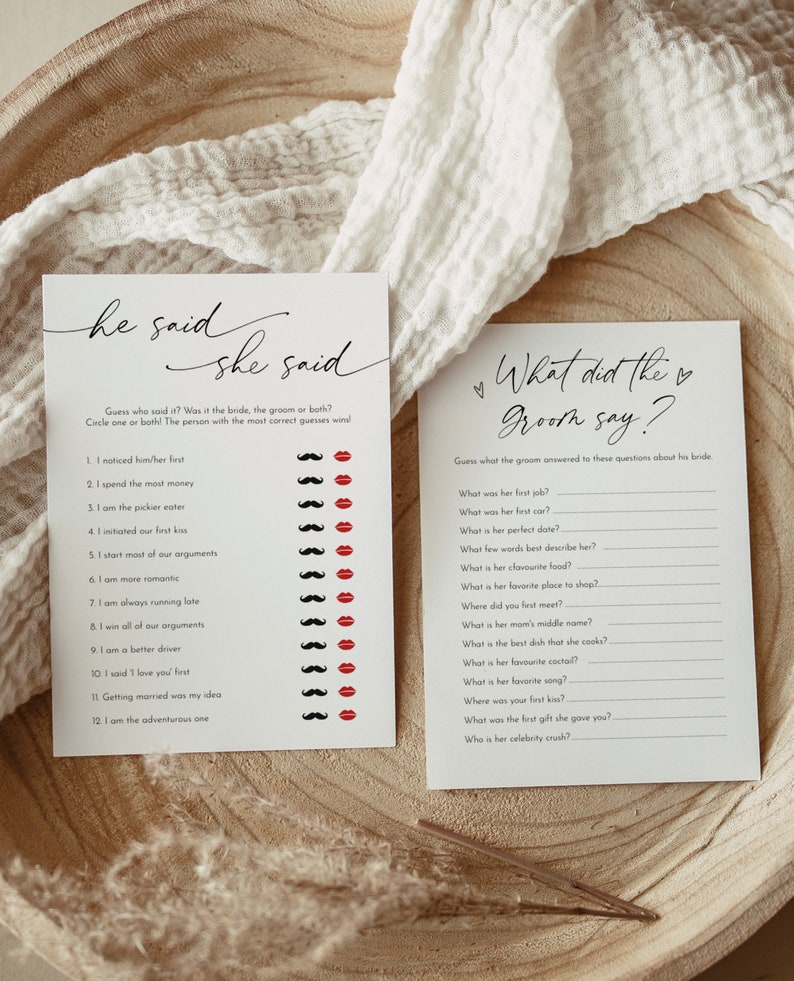 he said
she said
Guess who said it? Was it the bride, the groom or both?
Circle one or both! The person with the most correct guesses wins!
1. I noticed him/her first
2. I spend the most money
3. I am the pickier eater
4. I initiated our first kiss
5. I start most of our arguments
6. I am more romantic
7. I am always running late
8. I win all of our arguments
9. I am a better driver
10. I said 'I love you' first
11. Getting married was my idea
12. I am the adventurous one
What did the
groom say?
Guess what the groom answered to these questions about his bride.
What was her first job?
What was her first car?
What is her perfect date?
What few words best describe her?
What is her cfavourite food?
What is her favorite place to shop?
Where did you first meet?
What is her mom's middle name?
What is the best dish that she cooks?
What is her favourite coctail?
What is her favorite song?
Where was your first kiss?
What was the first gift she gave you?
Who is her celebrity crush?